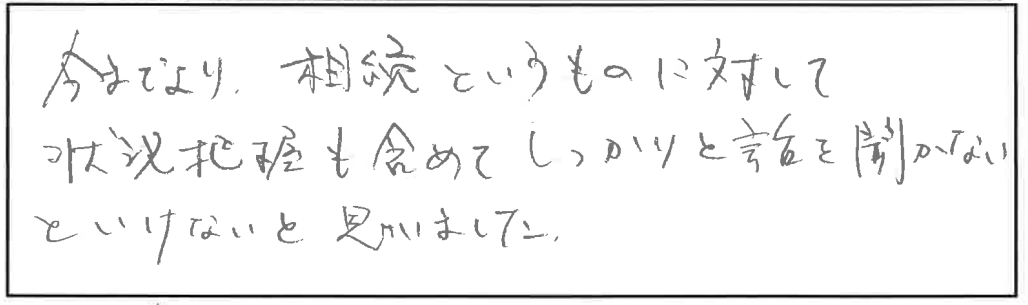 今までより、相続というものに対して
状況把握も含めてしっかりと話を聞かない
といけないと思いました。